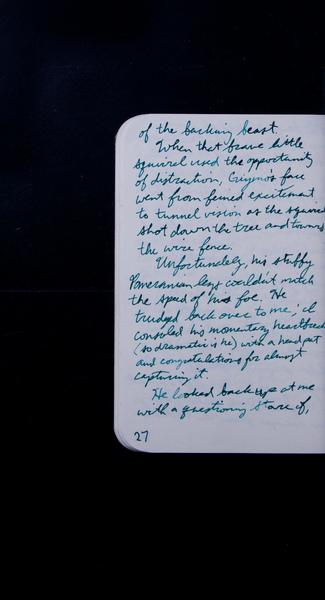 of the barking beast.
When that brave little
squirrel used the opportunity
of distraction, Grizmo's face
went from feined excitement
to tunnel vision as the squirrel
shot down the tree and toward
the wire fence.
Unfortunately, his stuffy
Pomeranian legs couldn't match
the speed of his foe. He
trudged back over to me; I
consoled his momentary heartbreak
(so dramatic is he) with a head pat
and congratulations for almost
capturing it.
He looked back up at me
with a questioning stare if,
27